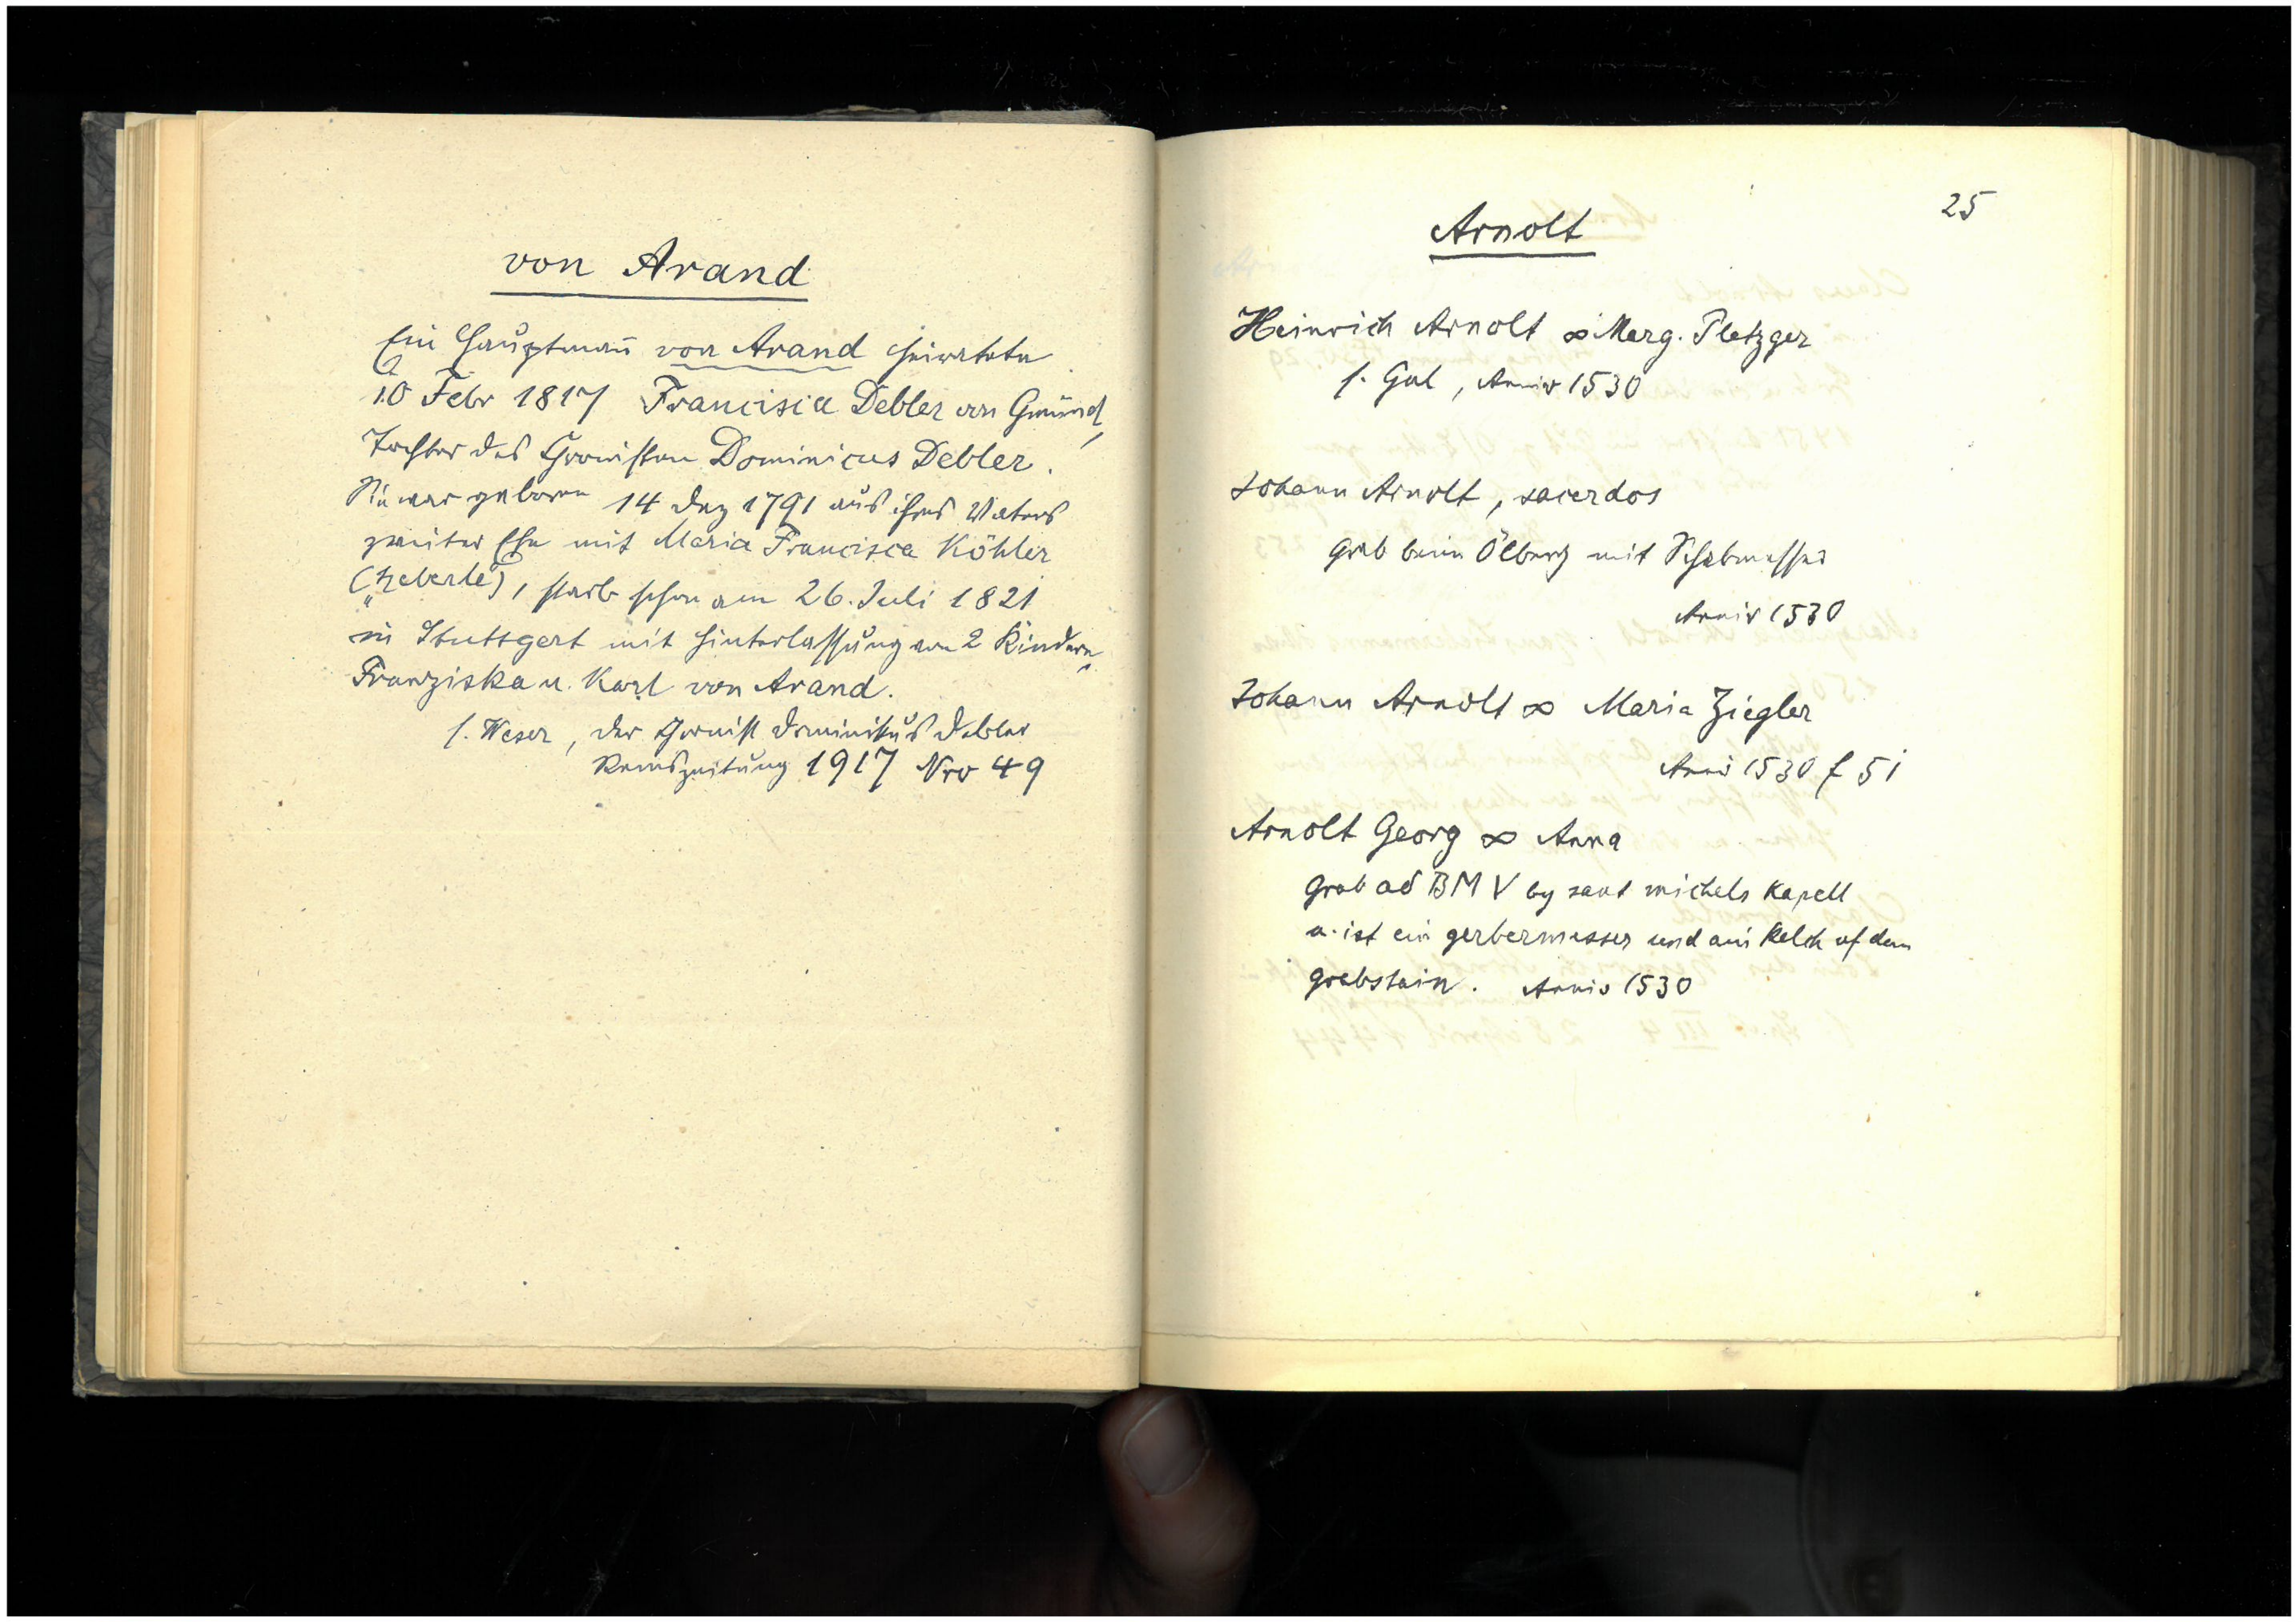 von Arand
Ein Hauptmann von Arand heiratete
10 Febr 1817 Francisca Debler von Gmünd,
Tochter des Chronisten Dominicus Debler.
Sie war geboren 14 Dez 1791 aus ihres Vaters
zweiter Ehe mit Maria Francisca Köhler
starb schon am 26. Juli 1821
in Stuttgart mit Hinterlassung von 2 Kindern,
Franziska u. Karl von Arand.
s. Weser, der Chronist Dominikus Debler
Remszeitung 1917 Nro 49
25
Arnolt
Heinrich Arnolt ∞ Marg. Pletzger
s. Gul, Anniv 1530
Johann Arnolt, sacerdos
Grab beim Ölberg mit Schabmesser
Anniv 1530
Johann Arnolt ∞ Maria Ziegler
Anniv 1530 f 51
Arnolt Georg ∞ Anna
Grab ad BMV by sant michels kapell
u. ist ein gerbermesser und ain kelch uf dem
grabstain. Anniv 1530